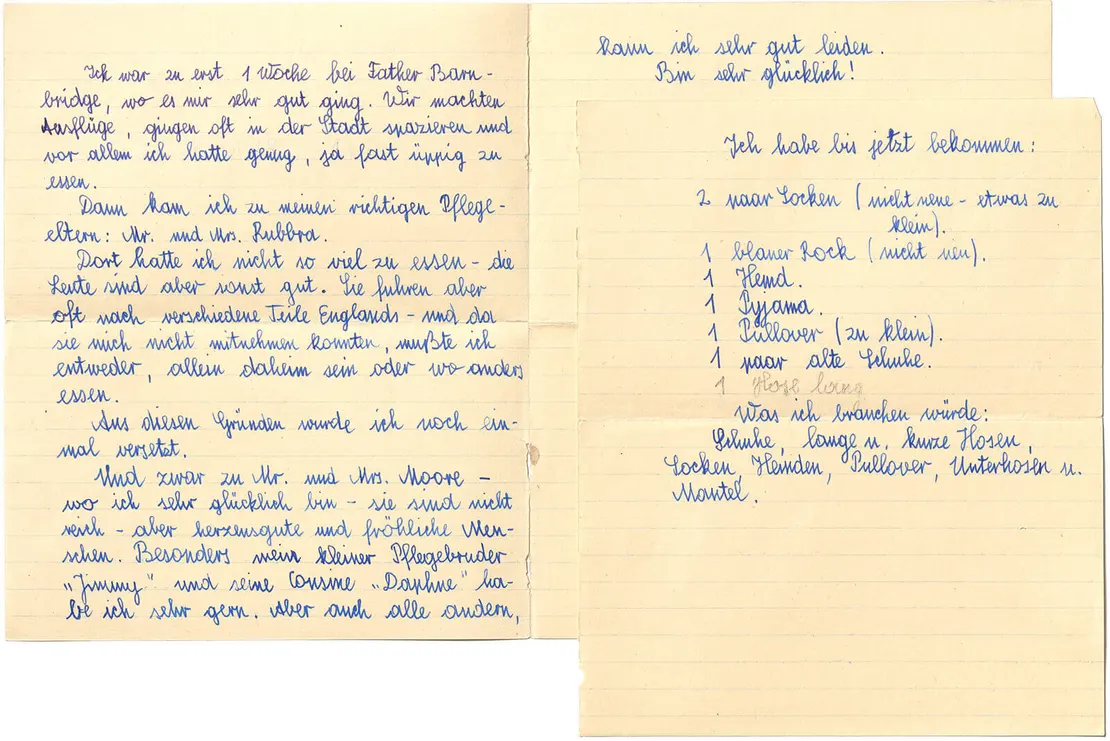 Ich war zu erst 1 Woche bei Father Barn-
bridge, wo es mir sehr gut ging. Wir machten
Ausflüge, gingen oft in der Stadt spazieren und
vor allem ich hatte genug, ja fast üppig zu
essen.
Dann kam ich zu meinen richtigen Pflege-
eltern: Mr. und Mrs. Rubbra.
Dort hatte ich nicht so viel zu essen - die
Leute sind aber sonst gut. Sie fuhren aber
oft nach verschiedene Teile Englands - und da
sie mich nicht mitnehmen konnten, mußte ich
entweder, allein daheim sein oder wo anders
essen.
Aus diesen Gründen wurde ich noch ein-
mal versetzt.
Und zwar zu Mr. und Mrs. Moore -
wo ich sehr glücklich bin - sie sind nicht
reich - aber herzensgute und fröhliche Men-
schen. Besonders mein kleiner Pflegebruder
„Jimmy" und seine Cousine „Daphne" ha-
be ich sehr gern. Aber auch alle andern,
kann ich sehr gut leiden.
Bin sehr glücklich!
Ich habe bis jetzt bekommen:
2 paar Socken (nicht neue - etwas zu
klein).
1 blauer Rock (nicht neu).
1 Hemd.
1 Pyjama.
1 Pullover (zu klein).
1 paar alte Schuhe.
1 Hose lang
Was ich brauchen würde:
Schuhe, lange u. kurze Hosen,
Socken, Hemden, Pullover, Unterhosen u.
Mantel.